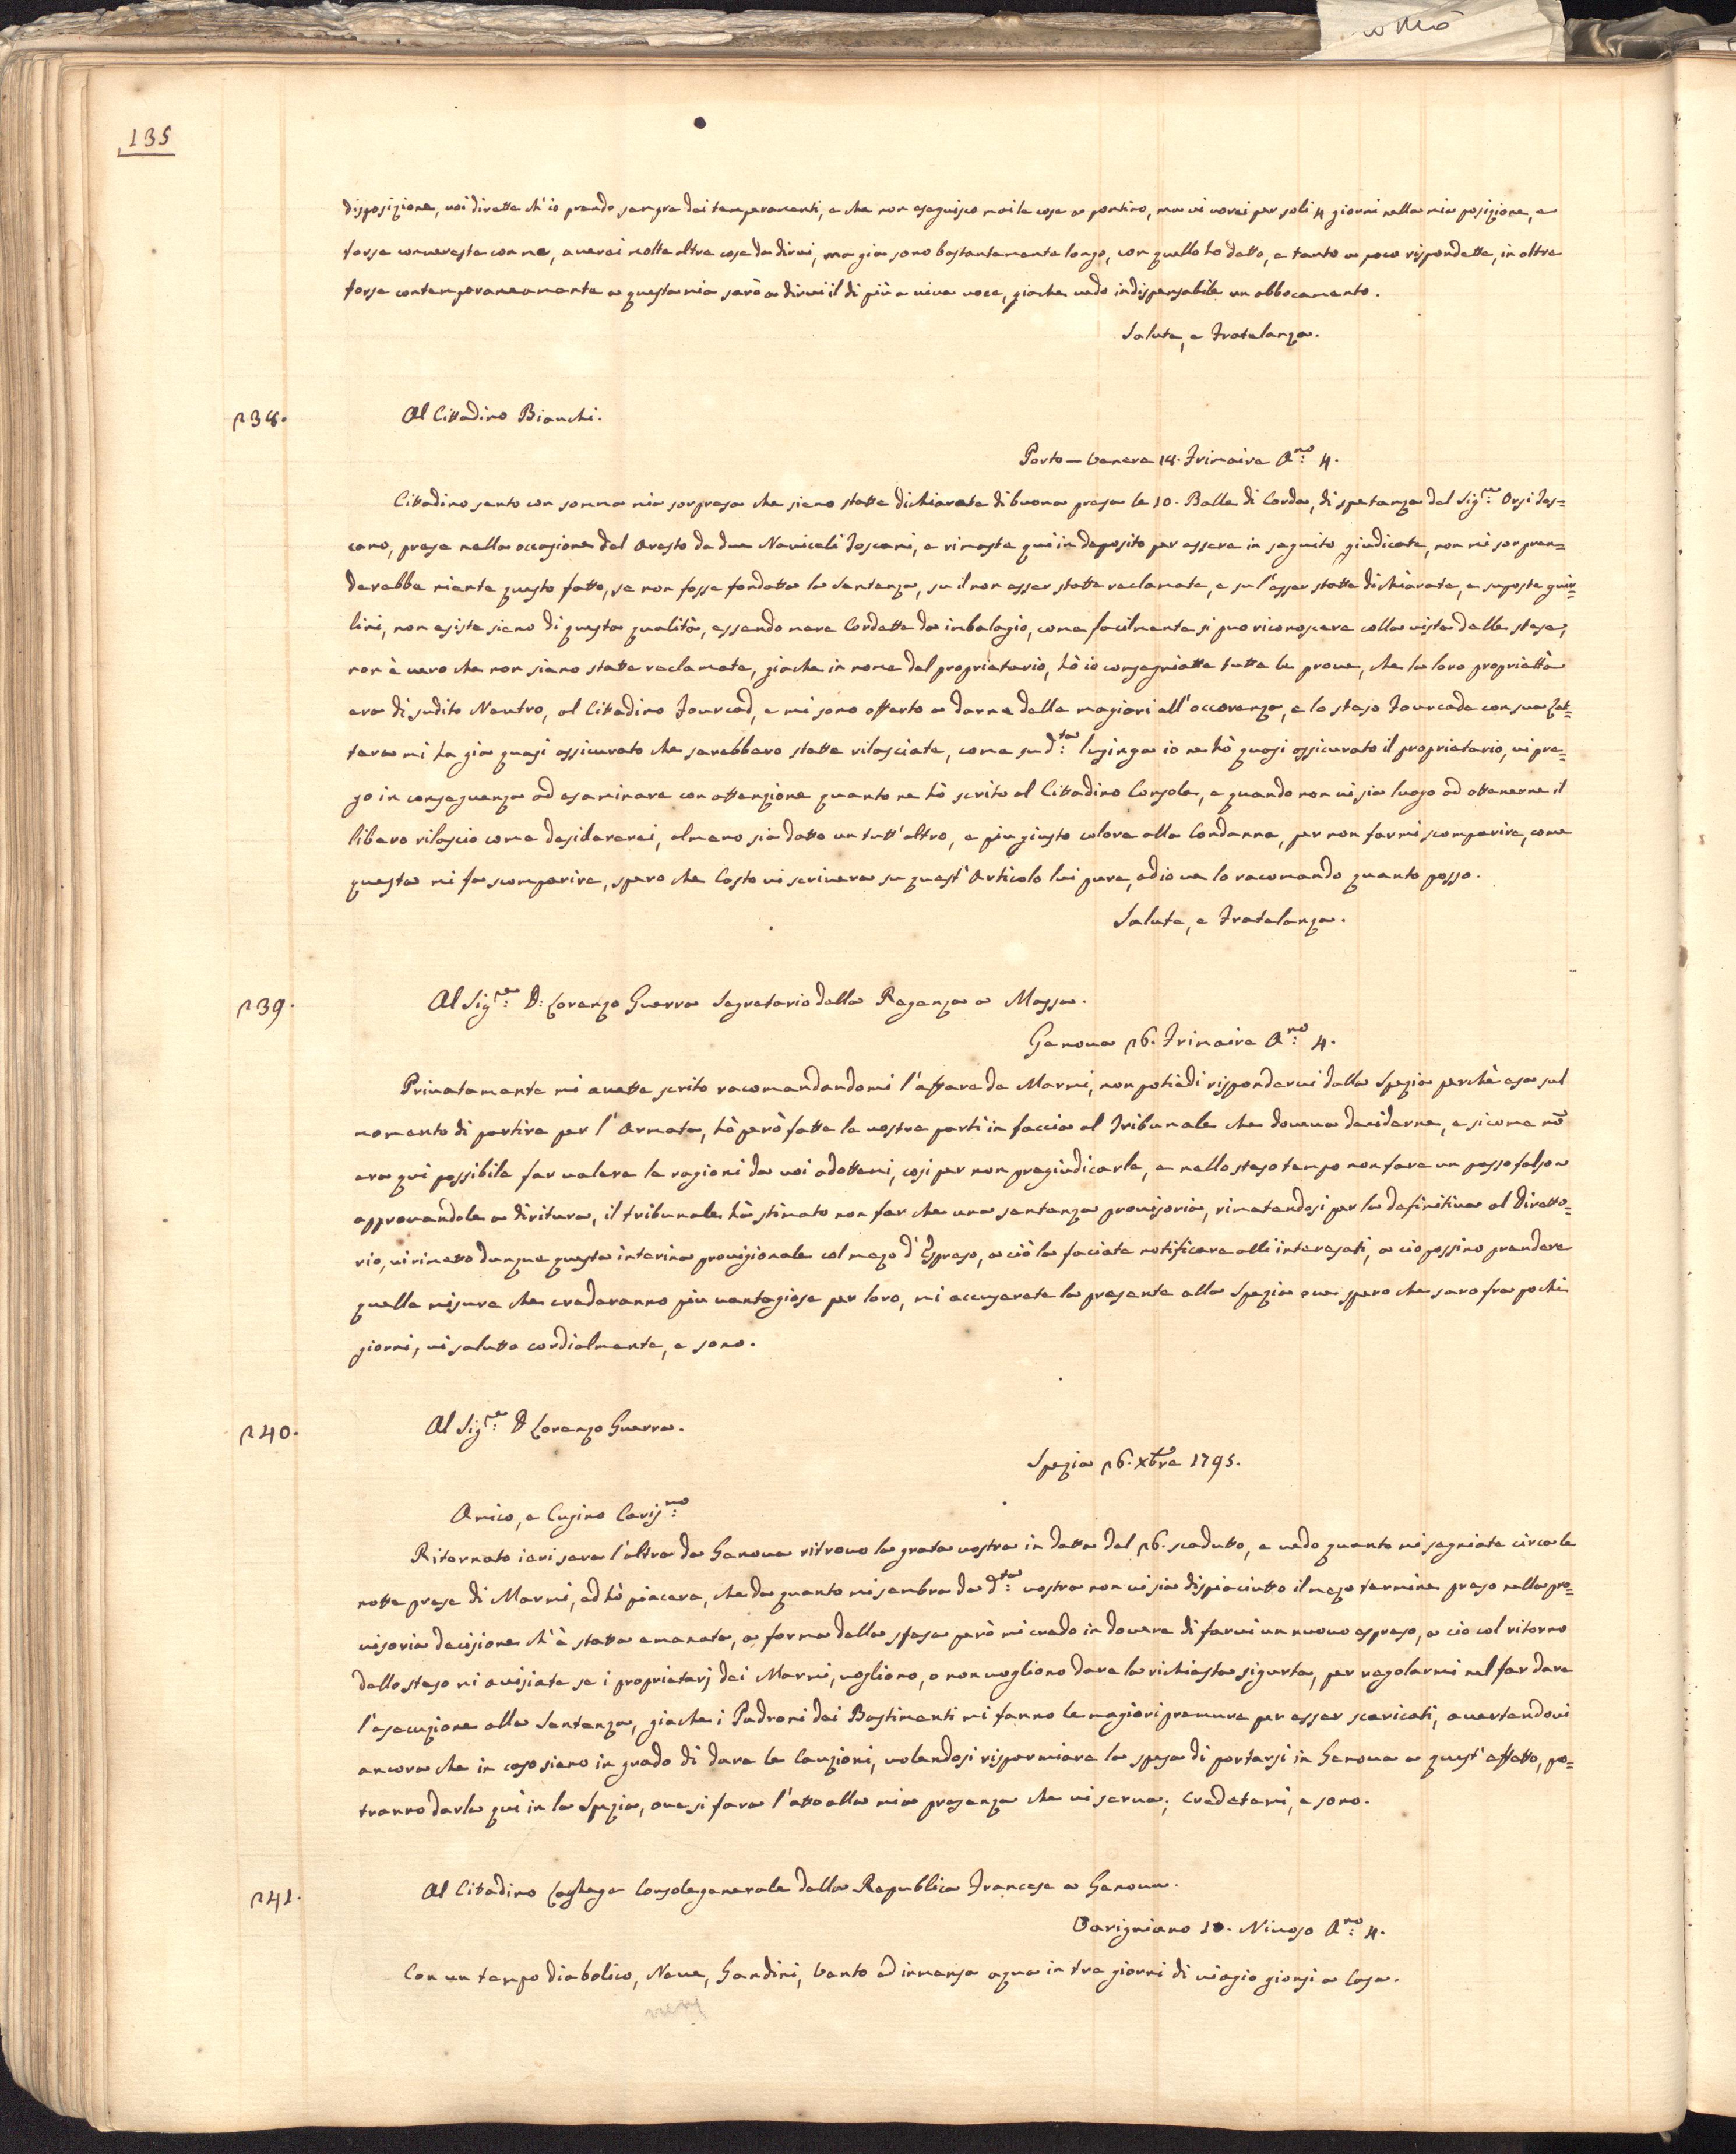 135
disposizione, voi direte ch'io prendo sempre dei temperamenti, e che non eseguisco mai le cose a pontino, ma vi vorei per soli 4 giorni nella mia posizione, e
forse convereste con me, averei molte altre cose da dirvi, ma gia sono bastantemente longo, con quello ho detto, e tanto a poco rispondette, in oltre
forse contemporaneamente a questa mia sarò a dirvi il di più a viva voce, giache vedo indispensabile un abbocamento.
Salute, e Fratelanza.
238.
Al Cittadino Bianchi.
Porto-Venere 14. Frimaire A:no 4.
Cittadino sento con somma mia sorpresa che sieno state dichiarate di buona presa le 10. Balle di Corda, di spetanza del Sig:re Orsi Tos=
cano, prese nella occasione del Aresto da due Navicelli Toscani, e rimaste qui in deposito per essere in seguito giudicate, non mi sorpren=
derebbe niente questo fatto, se non fosse fondatta la Sentenza, su il non esser statte reclamate, e su l'esser statte dichiarate, e suposte guir=
lini, non esiste sieno di questa qualità, essendo mere Cordette da imbalagio, come facilmente si puo riconoscere colla vista delle stese,
non è vero che non siano statte reclamate, giache in nome del proprietario, hò io consegniatte tutte le prove, che la loro proprietà
era di sudito Neutro, al Cittadino Fourcad, e mi sono offerto a darne delle magiori all'occorenza, e lo steso Fourcade con sua Let=
tera mi ha gia quasi assicurato che sarebbero statte rilasciate, come su d:ta lusinga io ne hò quasi assicurato il proprietario, vi pre=
go in conseguenza ad esaminare con attenzione quanto ne hò scrito al Cittadino Console, e quando non vi sia luogo ad ottenerne il
libero rilascio come desiderarei, almeno sia datto un tutt'altro, e piu giusto colore alla Condanna, per non farmi scomparire, come
questa mi fa scomparire, spero che Costo vi scrivera su quest'Articolo lui pure, ed io ve lo racomando quanto posso.
Salute, e Fratelanza.
239.
Al Sig:re D: Lorenzo Guerra Segretario della Reganza a Massa.
Genova 26. Frimaire A:no 4.
Privatamente mi avette scrito racomandandomi l'affare de Marmi, non potiedi rispondervi dalla Spezia perchè ero sul
momento di partire per l'Armata, hò però fatte le vostre parti in faccia al Tribunale che doveva deciderne, e sicome nō
era qui possibile far valere le ragioni da voi adottemi, cosi per non pregiudicarle, e nello steso tempo non fare un passo falso
approvandole a diritura, il tribunale hà stimato non far che una sentenza provisoria, rimetendosi per la definitiva al Diretto=
rio, vi rimetto dunque questa interina provigionale col mezo d'Espreso, a ciò la faciate notificare alli interesati, a cio possino prendere
quelle misure che crederanno piu vantagiose per loro, mi accuserete la presente alla Spezia ove spero che saro fra pochi
giorni, vi salutto cordialmente, e sono.
240.
Al Sig:re D Lorenzo Guerra.
Spezia 26. Xbre 1795.
Amico, e Cugino Caris:mo
Ritornato ieri sera l'altra da Genova ritrovo la grata vostra in datta del 26. scadutto, e vedo quanto mi segniate circa le
notte prese di Marmi, ed hò piacere, che da quanto mi sembra da d:ta vostra non vi sia dispiaciutto il mezo termine preso nella pro=
visoria decisione ch'è stata emanata, a forma della stesa però mi credo in dovere di farvi un nuovo espreso, a cio col ritorno
dello steso mi avisiate se i proprietarj dei Marmi, vogliono, o non vogliono dare la richiesta sigurta, per regolarmi nel far dare
l'esecuzione alla Sentenza, giache i Padroni dei Bastimenti mi fanno le magiori premure per esser scaricati, avertendovi
ancora che in caso sieno in grado di dare le Cauzioni, volendosi risparmiare la spesa di portarsi in Genova a quest'effetto, po=
tranno darla quì in la Spezia, ove si fara l'atto alla mia presenza che vi serva, Credetemi, e sono.
241.
Al Cittadino Console generale della Republica Francese a Genova.
Varigniano 10. Nivoso A:no 4.
Con un tempo diabolico, Neve, Vento ed immensa aqua in tre giorni di viagio gionsi a Casa.